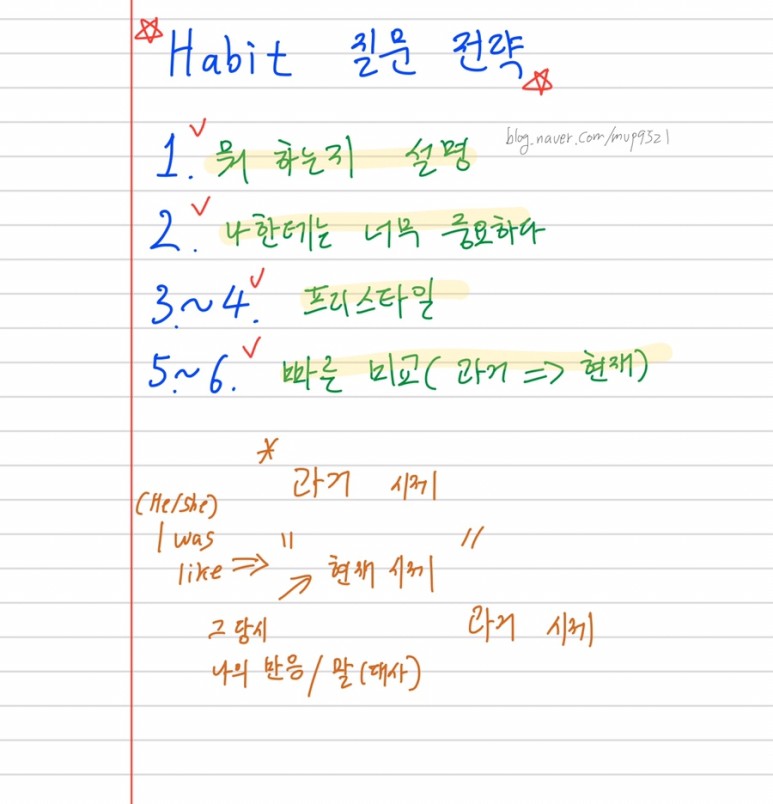 Habit 질문 전략
blog.naver.com/mup9321
1. 뭐 하는지 설명
2. 나한테는 너무 중요하다
3.~4. 프리스타일
5.~6. 빠른 비교( 과거 => 현재)
* 과거 시제
(He/she)
I was " "
like => 현재 시제
그 당시 과거 시제
나의 반응/말(대사)